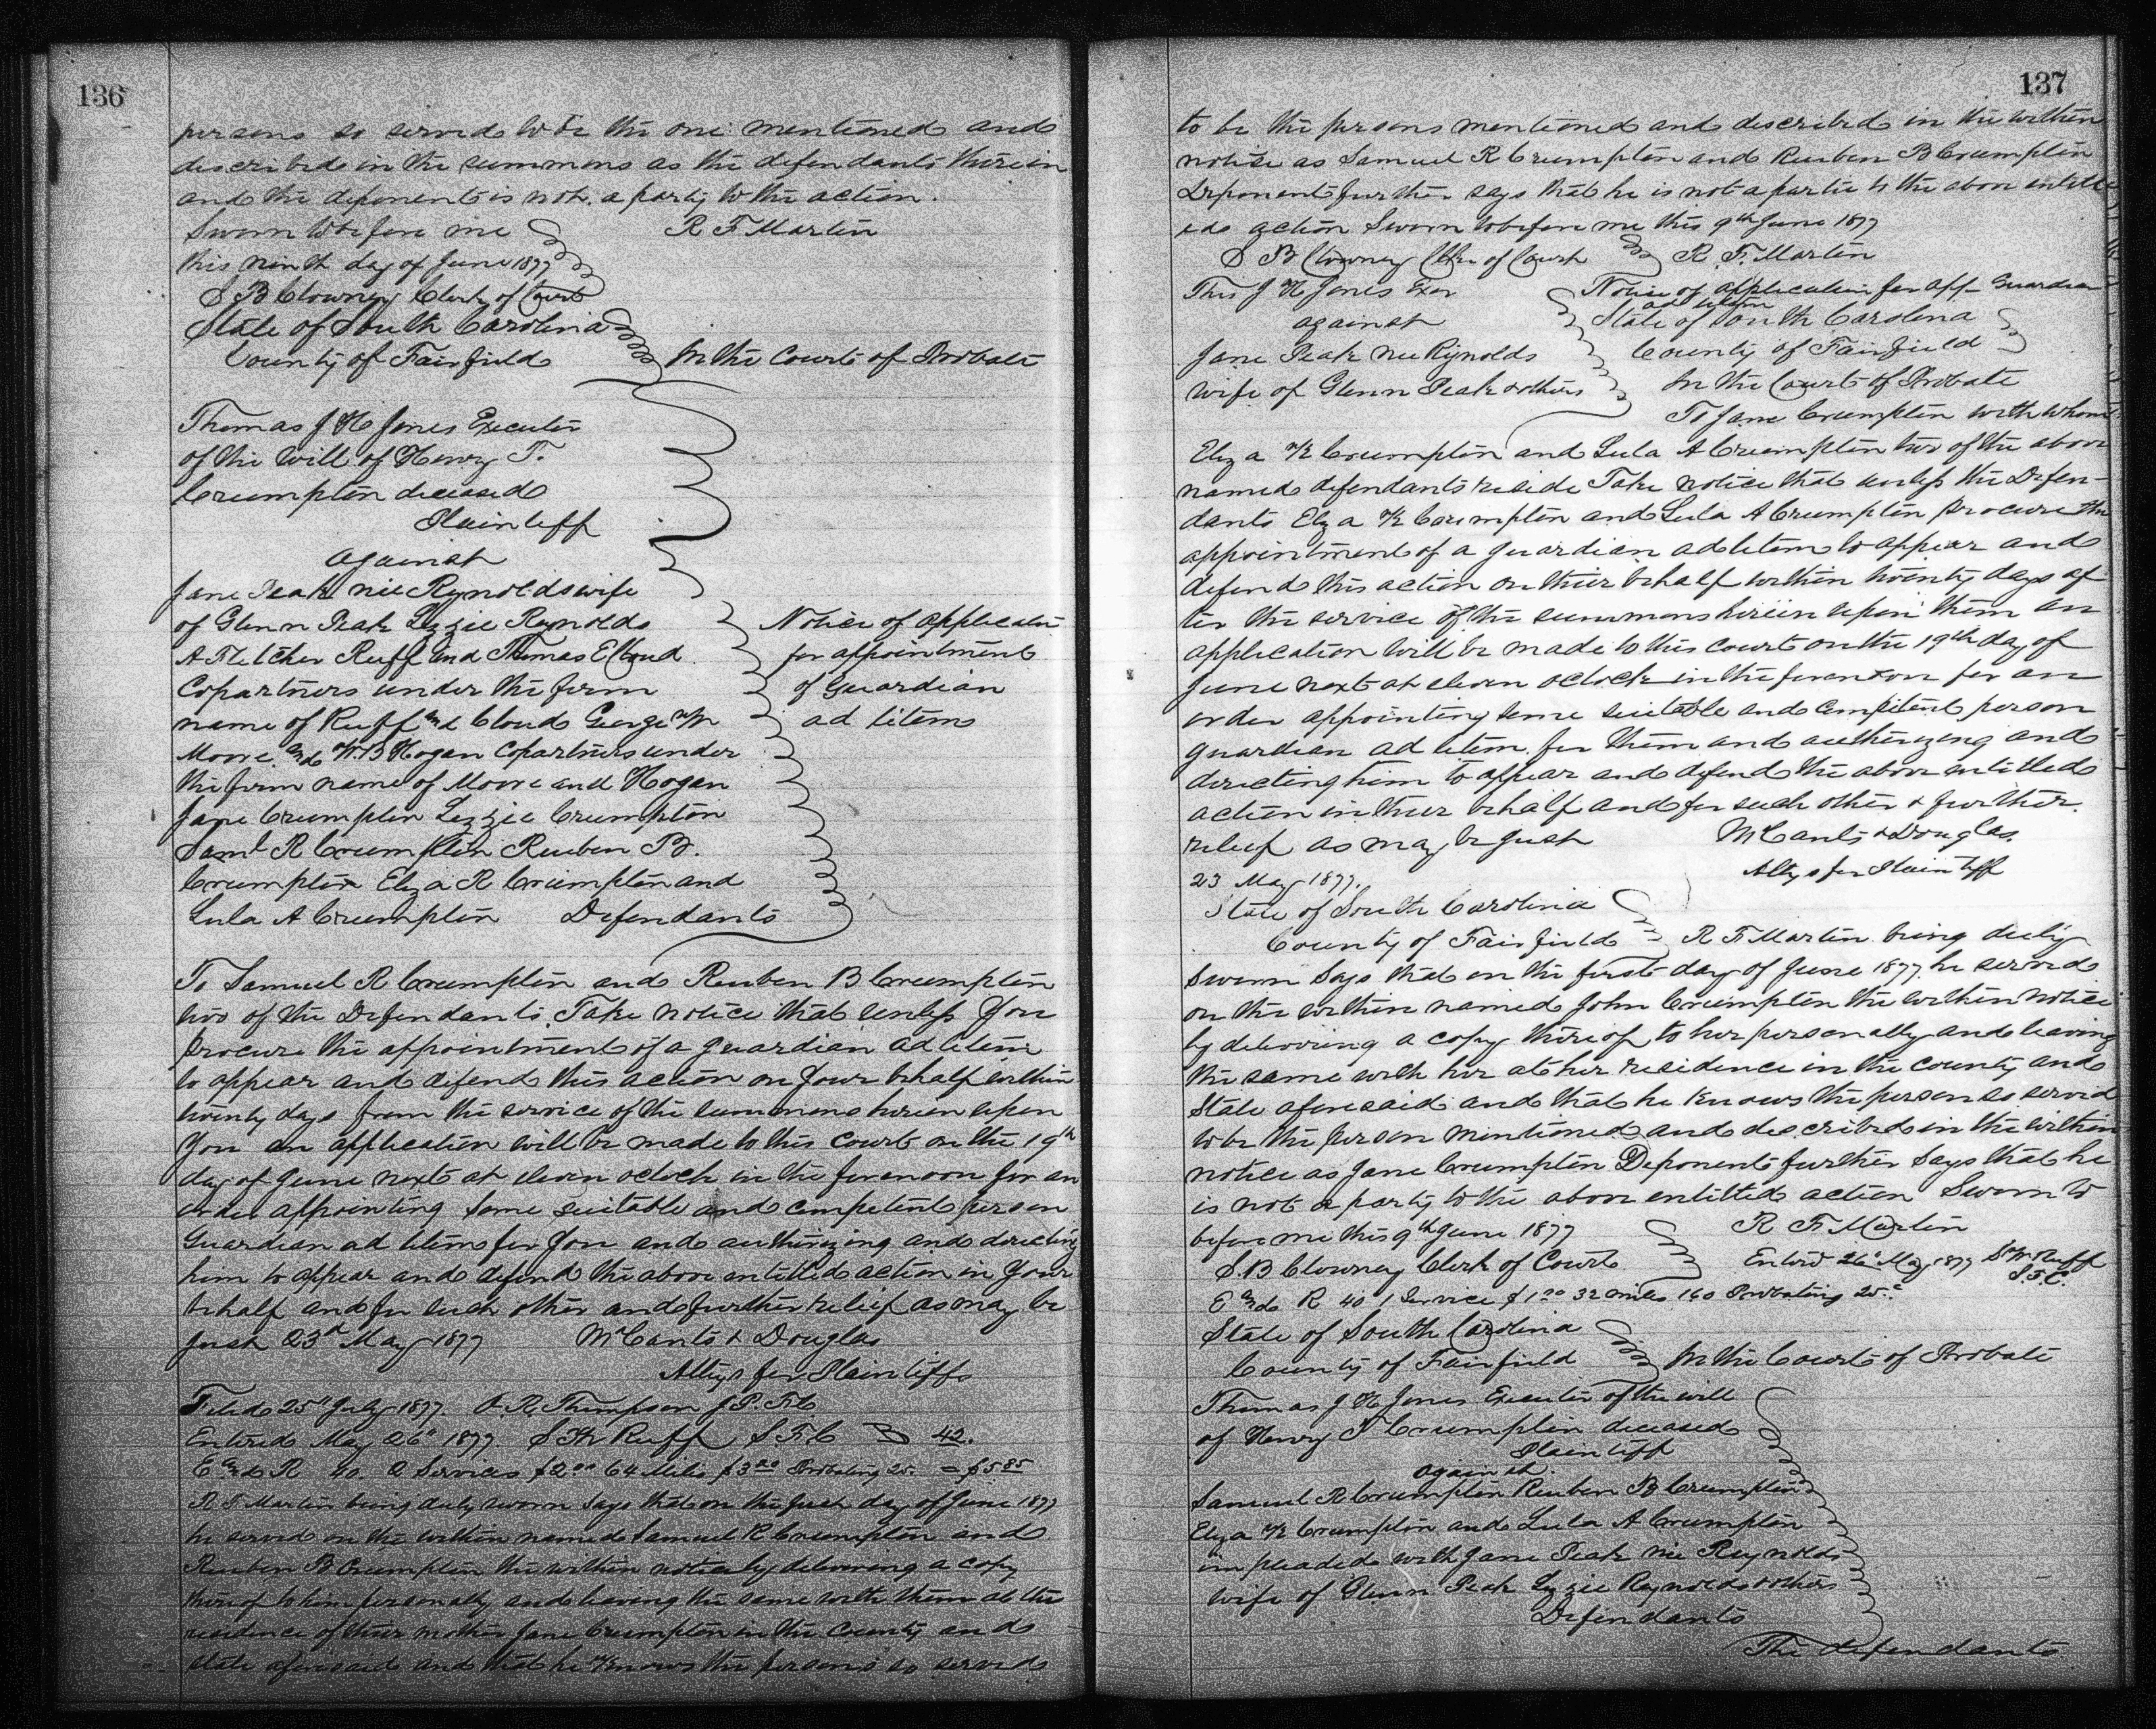 136
persons so served to be the one mentioned and
described in the summons as the defendants therein
and the deponent is not a party to the action.
Sworn to before me R F Martin
this ninth day of June 1877
S B Clowney Clerk of Court
State of South Carolina
County of Fairfield In the Court of Probate
Thomas J H Jones Executor
of the will of Henry T.
Crumpton deceased
Plaintiff
against
Jane Peak nee Reynolds wife
of Glenn Peak Lizzie Reynolds
A Fletcher Ruff and Thomas E Cloud
Copartners under the firm
name of Ruff and Cloud George W
Moore and W.B Hogan Copartners under
the firm name of Moore and Hogan
Jane Crumpton Lizzie Crumpton
Saml R Crumpton Reuben B.
Crumpton Eliza R Crumpton and
Lula A Crumpton Defendants
Notice of applicatn
for appointment
of Guardian
ad litem
To Samuel R Crumpton and Reuben B Crumpton
two of the Defendants. Take notice that unless you
procure the appointment of a guardian ad litem
to appear and defend this action on your behalf within
twenty days from the service of the summons herein upon
you an application will be made to this court on the 19th
day of June next at eleven oclock in the forenoon for an
order appointing some suitable and competent person
Guardian ad litem for you and authorizing and directing
him to appear and defend the above entitled action in your
behalf and for such other and further relief as may be
just 23d May 1877 McCants & Douglas
Attys for Plaintiffs
Filed 25th July 1877. O. R. Thompson J.P.F.C
Entered May 26th 1877. S W Ruff S F C 42.
E and R 40 2 Services $2.00 64 Miles $3.20 Probating 25. = $5.85
R F Martin being duly sworn says that on the first day of June 1877
he served on the within named Samuel R Crumpton and
Reuben B Crumpton the within notice by delivering a copy
thereof to him personally and leaving the same with them at the
residence of their mother Jane Crumpton in the County and
state aforesaid and that he knows the persons so served
137
to be the persons mentioned and described in the within
notice as Samuel R Crumpton and Reuben B Crumpton
Deponent further says that he is not a partie to the above entitl
ed action Sworn to before me this 9th June 1877
S B Clowney Clk of Court R. F. Martin
Thos J H Jones Exor
against
Jane Peak nee Rynolds
wife of Glenn Peak & others
Notice of application for app Guardian
ad litem
State of South Carolina
County of Fairfield
In the Court of Probate
To Jane Crumpton with whom
Eliza K Crumpton and Lula A Crumpton two of the above
named defendants reside Take notice that unless the Defen-
dants Eliza K Crumpton and Lula A Crumpton procure the
appointment of a guardian ad litem to appear and
defend this action on their behalf within twenty days af
ter the service of the summons herein upon them an
application will be made to this court on the 19th day of
June next at eleven oclock in the forenoon for an
order appointing some suitable and competent person
guardian ad litem for them and authorizing and
directing him to appear and defend the above entitled
action in their behalf and for such other & further
relief as may be just McCants & Douglas
23 May 1877. Attys for Plaintiff
State of South Carolina
County of Fairfield R F Martin being duly
Sworn Says that on the first day of June 1877 he served
on the within named John Crumpton the within notice
by delivering a copy thereof to her personally and leaving
the same with her at her residence in the county and
State aforesaid and that he knows the person so served
to be the person mentioned and described in the within
notice as Jane Crumpton Deponent further says that he
is not a party to the above entitled action Sworn to
before me this 9th June 1877 R F Martin
S. B Clowney Clerk of Court Enterd 26th May 1877 S W Ruff
S.F.C.
E and R 40 1 Service $1.00 32 miles 1.60 Probating 25c
State of South Carolina
County of Fairfield In the Court of Probate
Thomas J H Jones Executor of the will
of Henry T Crumpton deceased
Plaintiff
against
Samuel R Crumpton Reuben B Crumpton
Eliza K Crumpton and Lula A Crumpton
impleaded with Jane Peak nee Reynolds
wife of Glenn Peak Lizzie Reynolds & others
Defendants
The defendants